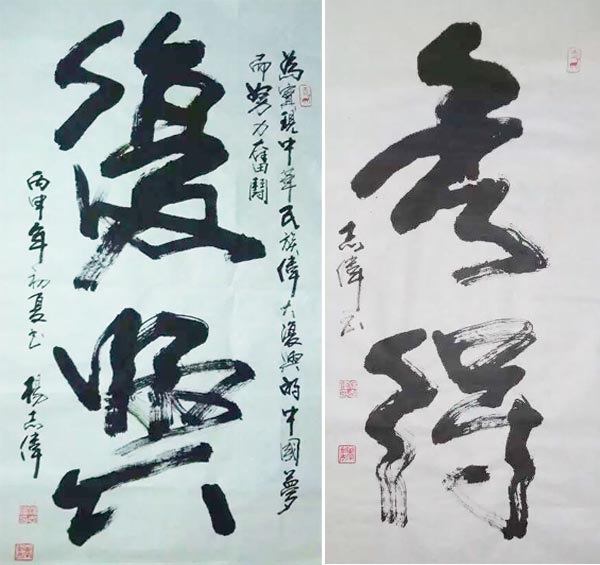 復興
為實現中華民族偉大復興的中國夢
而努力奮鬪
丙申年初夏书
楊志偉
得
志偉书